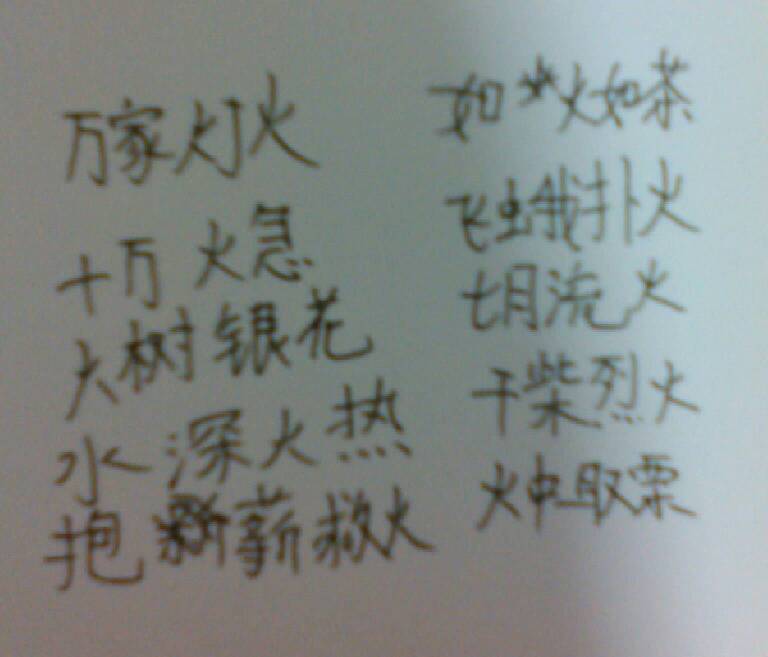 万家灯火
十万火急
火树银花
水深火热
抱薪救火
如火如荼
飞蛾扑火
七月流火
干柴烈火
火中取栗